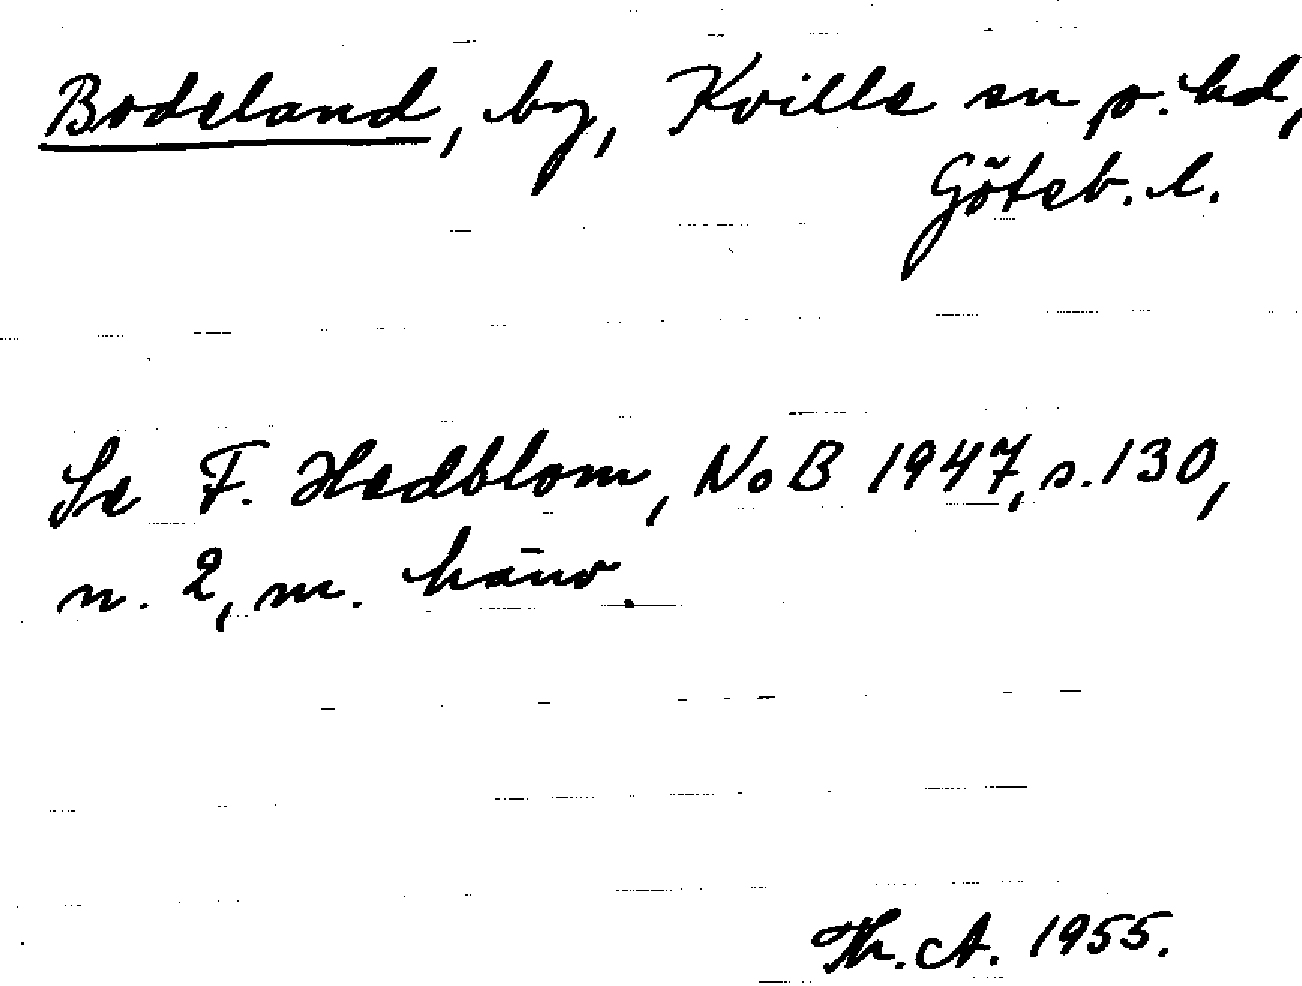 Bodeland, by, Kville sn o. hd,
Göteb. l.
Se F. Hedblom, NoB 1947, s. 130,
n. 2, m. hänv.
Th. A. 1955.